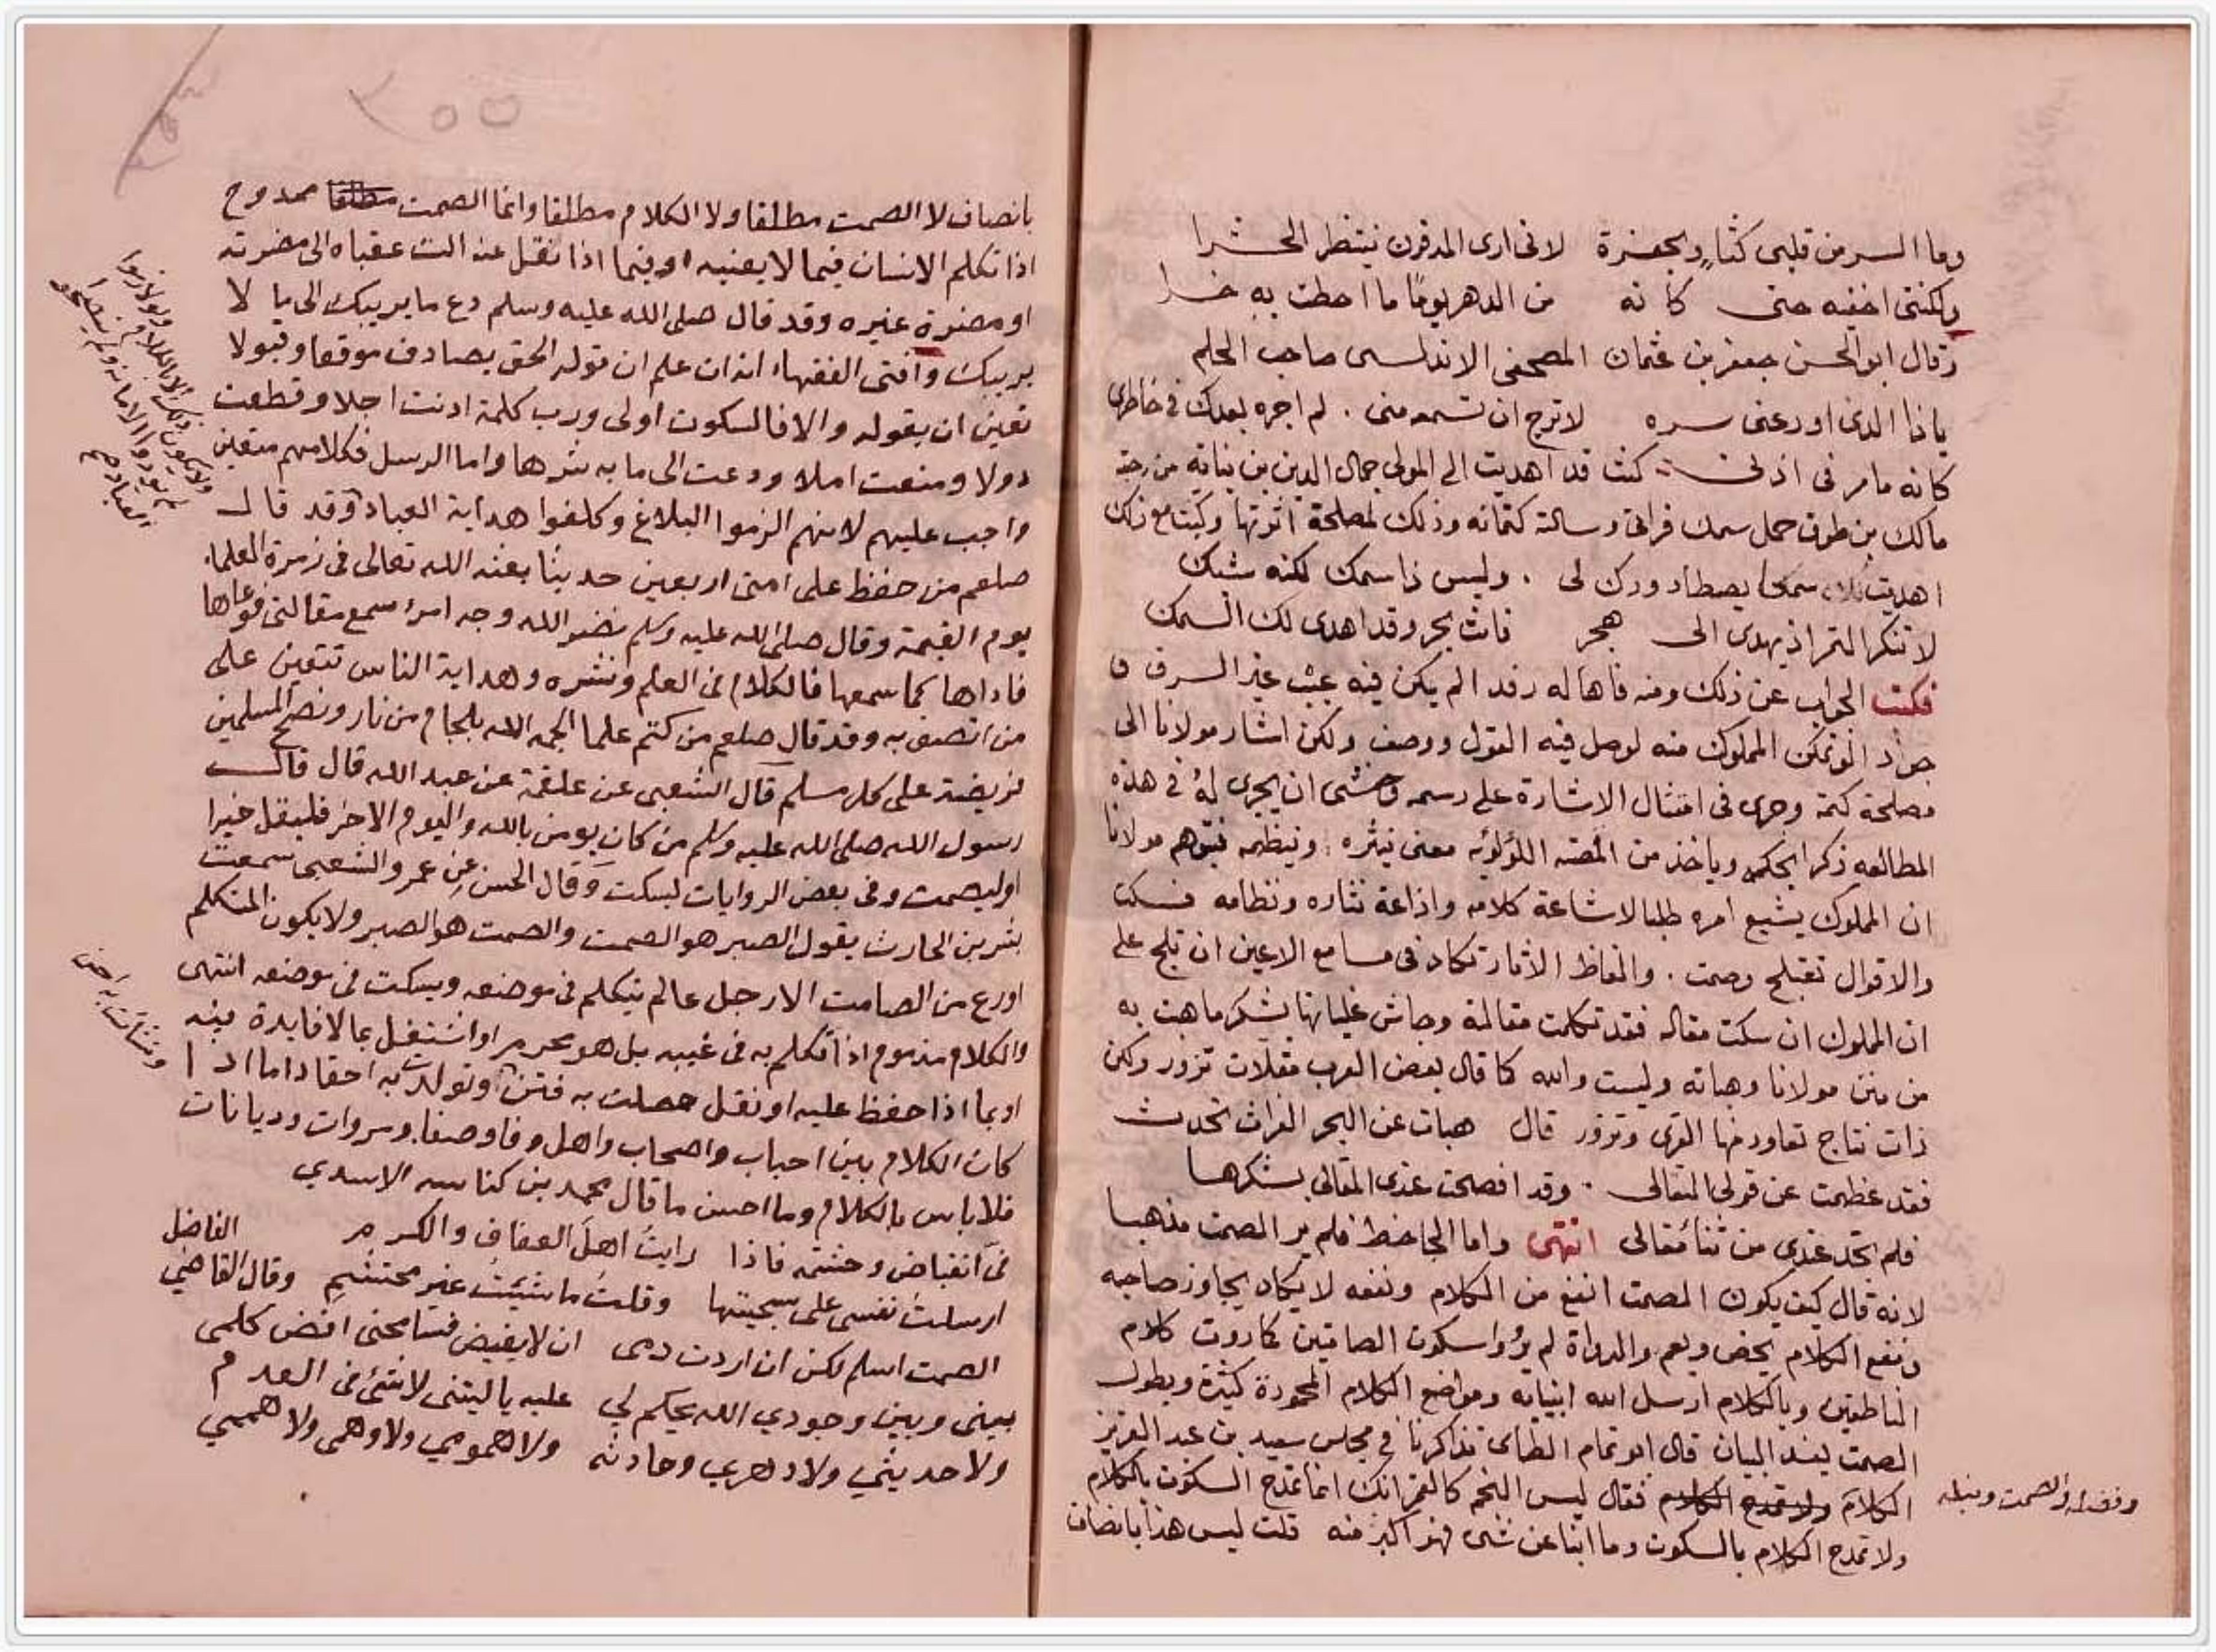 وما السر من قلبى كثاو بحفرة لانى ارى المدفون ينتظر الحشرا
ولكننى اخفيه حتى كانه من الدهر يوما ما احطت به خبرا
وقال ابو الحسن جعفر بن عثمان المصحفى الاندلسى صاحب الحلم
ياذا الذى اودعنى سره لا ترج ان تسمعه منى لم اجره بعدك فى خاطرى
كانه ما مر فى اذنى كنت قد اهديت الى المولى جمال الدين بن نباته من رحبة
مالك بن طوق حمل سمك فراتى وسالته كتمانه وذلك لمصلحة اثرتها وكتبت مع ذلك
اهديت سمكا يصطاد ودك لى وليس ذا سمك لكنه شبك
لا تنكر التمر اذ يهدى الى هجر فانت بحر وقد اهدى لك السمك
فكتب الجواب عن ذلك ومنه فاها له رفدا لم يكن فيه عيب غير السرف
جواد لو تمكن المملوك منه لوصل فيه القول ووصف ولكن اشار مولانا الى
مصلحة كتمه وجرى فى امتثال الاشارة على رسمه وخشى ان يجرى له فى هذه
المطالعه ذكرا بحكم وياخذ من اللؤلؤيه معنى ينثره وينظمه فيتوهم مولانا
ان المملوك يشيع امره طلبا لاشاعة كلامه واذاعة نثاره ونظامه فسكت
والاقوال تعتلج وصمت والفاظ الاثار تكاد فى مسامع الاعين ان تلج على
ان المملوك ان سكت مقاله فقد تكلمت مقالمة وجاش غليانها بشكر ماهت به
من منن مولانا وهباته وليست والله كما قال بعض العرب مقلات نزور ولكن
ذات نتاج تعاود منها القرى وتزور قال هبات عن البحر الفرات تحدثت
فقد عظمت عن قولى المتعالى وقد افصحت عندى المقالى بشكرها
فلم تجد عندى من ثنا مقالى انتهى واما الجاحظ فلم ير الصمت مذهبا
لانه قال كيف يكون الصمت انفع من الكلام ونفعه لا يكاد يجاوز صاحبه
ونفع الكلام يخص ويعم والرواة لم يرووا سكوت الصامتين كما روت كلام
الناطقين وبالكلام ارسل الله انبيائه ومواضع الكلام المحمودة كثيرة وبطول
الصمت يفسد البيان قال ابو تمام الطاى تذاكرنا فى مجلس سعيد بن عبد العزيز
الكلام ولا تمدح الكلام فقال ليس النجم كالقمر انك انما تمدح السكوت بالكلام
وفضله والصمت ونبله
ولا تمدح الكلام بالسكوت وما انبا عن شى فهو اكبر منه قلت ليس هذا بانصاف
٢٥٥
بانصاف لا الصمت مطلقا ولا الكلام مطلقا وانما الصمت مطلقا ممدوح
اذا تكلم الانسان فيما لا يعنيه او فيما اذا نقل عنه الت عقباه الى مضرته
او مضرة غيره وقد قال صلى الله عليه وسلم دع ما يريبك الى ما لا
يريبك وافتى الفقهاء انه ان علم ان قوله الحق يصادف موقعا وقبولا
تعين ان يقوله والا فالسكوت اولى ورب كلمة ادنت اجلا وقطعت
دولا ومنعت املا ودعت الى ما به شرها واما الرسل فكلامهم متعين
واجب عليهم لانهم الزموا البلاغ وكلفوا هداية العباد وقد قال
ولا يكون ذلك الا بالكلام ولو لازموا
لم يودوا الامانة ولم ينصحوا
العباد صح
صلعم من حفظ على امتى اربعين حديثا بعثه الله تعالى فى زمرة العلماء
يوم القيمة وقال صلى الله عليه وسلم نضر الله وجه امرء سمع مقالتى فوعاها
فاداها كما سمعها فالكلام فى العلم ونشره وهداية الناس تتعين على
من اتصف به وقد قال صلعم من كتم علما الجمه الله بلجام من نار ونصح المسلمين
فريضة على كل مسلم قال الشعبى عن علقمة عن عبد الله قال قال
رسول الله صلى الله عليه وسلم من كان يومن بالله واليوم الاخر فليقل خيرا
او ليصمت وفى بعض الروايات ليسكت وقال الحسن عن عمرو الشعبى سمعت
بشر بن الحارث يقول الصبر هو الصمت والصمت هو الصبر ولا يكون المتكلم
اورع من الصامت الا رجل عالم يتكلم فى موضعه ويسكت فى موضعه انتهى
والكلام مذموم اذا تكلم به فى غيبه بل هو محرم او اشتغل بما لا فايدة فيه
او بما اذا حفظ عليه او نقل حصلت به فتن وتولدت به احقاد اما اذا
ونشات به احن
كان الكلام بين احباب واصحاب واهل وفا وصفا ومروات وديانات
فلا باس بالكلام وما احسن ما قال محمد بن كناسه الاسدي
فى انقباض وحشمة فاذا رايت اهل العفاف والكرم
ارسلت نفسى على سجيتها وقلت ما شئت غير محتشم وقال القاضي الفاضل
الصمت اسلم لكن ان اردت دمى ان لا يفيض فسامحنى افض كلمى
بينى وبين وجودي الله يحكم لي عليه ياليتنى لا شئ فى العدم
ولا حديثي ولا دهري وحادثه ولا همومي ولا وهمى ولا هممي